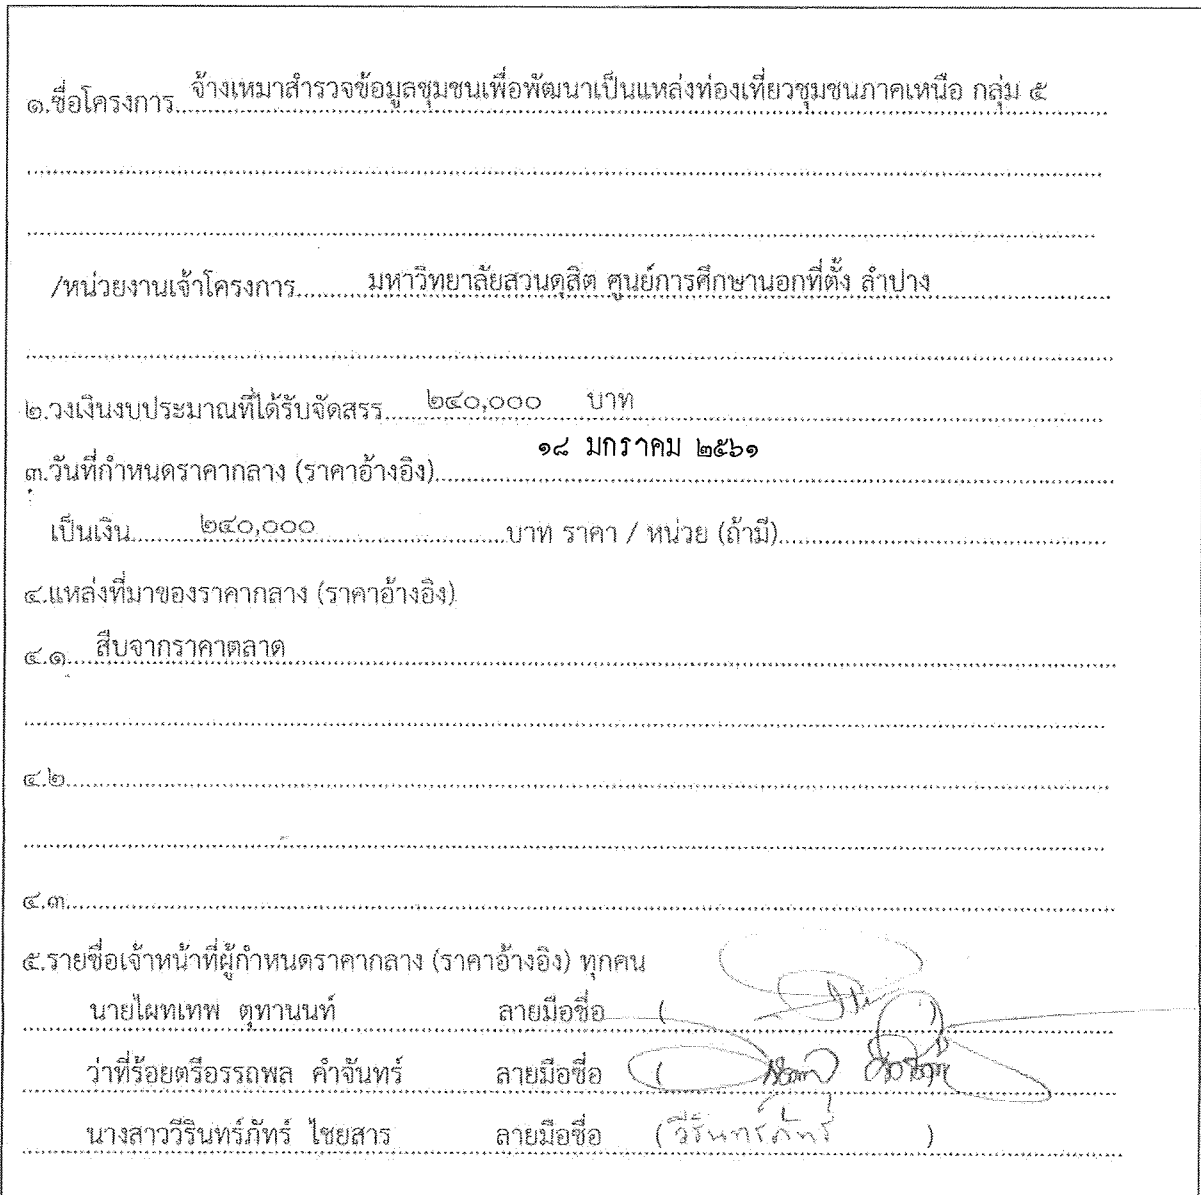 ๑.ชื่อโครงการ จ้างเหมาสำรวจข้อมูลชุมชนเพื่อพัฒนาเป็นแหล่งท่องเที่ยวชุมชนภาคเหนือ กลุ่ม ๕
/หน่วยงานเจ้าโครงการ มหาวิทยาลัยสวนดุสิต ศูนย์การศึกษานอกที่ตั้ง ลำปาง
๒.วงเงินงบประมาณที่ได้รับจัดสรร ๒๔๐,๐๐๐ บาท
๓.วันที่กำหนดราคากลาง (ราคาอ้างอิง) ๑๘ มกราคม ๒๕๖๑
เป็นเงิน ๒๔๐,๐๐๐ บาท ราคา / หน่วย (ถ้ามี)
๔.แหล่งที่มาของราคากลาง (ราคาอ้างอิง)
๔.๑ สืบจากราคาตลาด
๔.๒
๔.๓
๕.รายชื่อเจ้าหน้าที่ผู้กำหนดราคากลาง (ราคาอ้างอิง) ทุกคน
นายไผทเทพ ตุทานนท์ ลายมือชื่อ ( )
ว่าที่ร้อยตรีอรรถพล คำจันทร์ ลายมือชื่อ (
นางสาววีรินทร์ภัทร์ ไชยสาร ลายมือชื่อ ( วีรินทร์ภัทร์ )